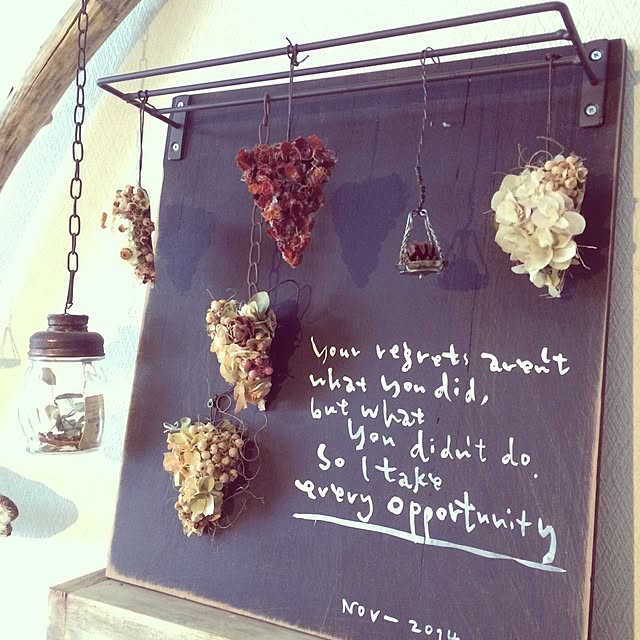 Your regrets aren't
what you did,
but what
you didn't do.
So I take
every opportunity
Nov- 2014